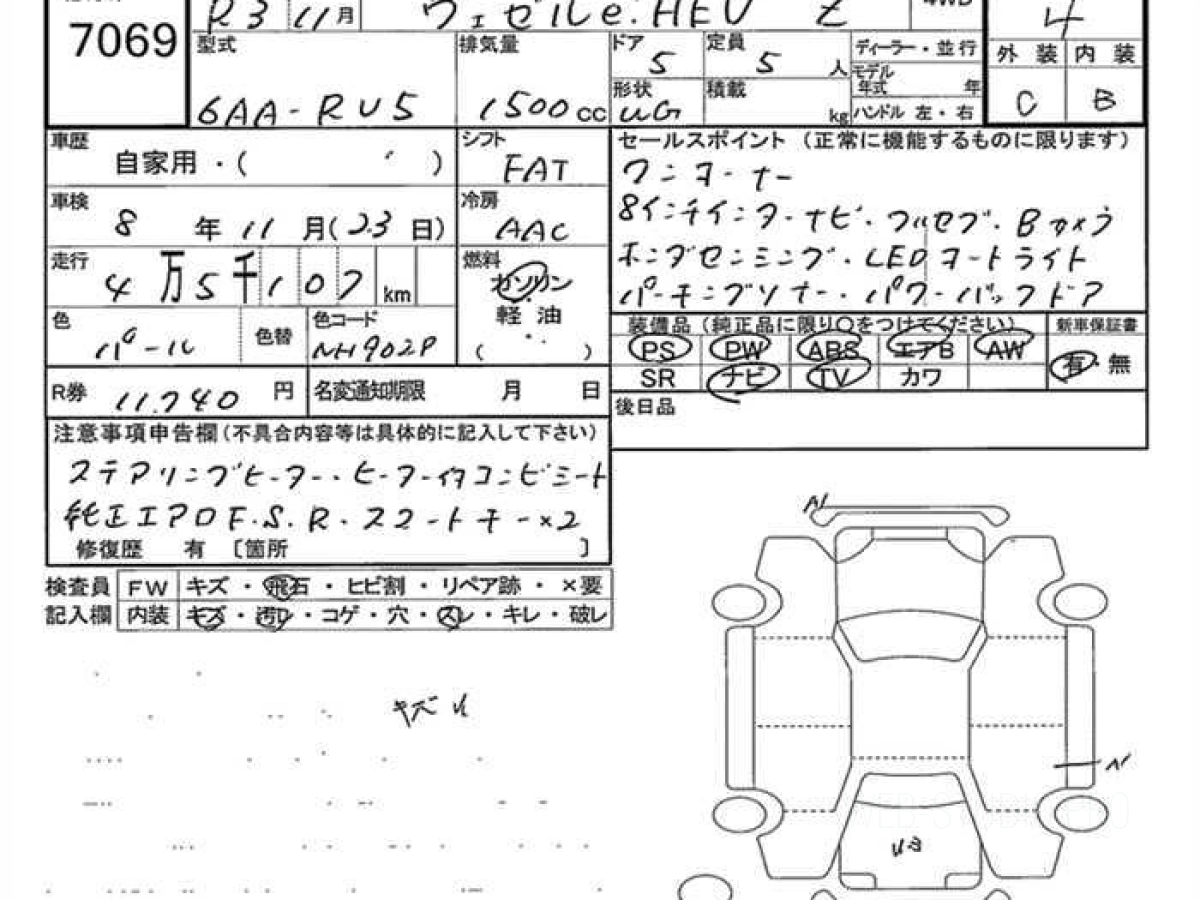 7069
R3 11月 ヴェゼルe:HEV Z 4WD 4
型式 6AA-RU5
排気量 1500cc
ドア 5
定員 5人
形状 UG
積載 kg
ディーラー・並行
モデル年式 年
ハンドル 左・右
外装 内装
C B
車歴 自家用・( )
シフト FAT
車検 8年11月(23日)
冷房 AAC
走行 4万5千107km
燃料 ガソリン
軽油
( )
色 パール 色替
色コード NH902P
R券 11,740円
名変通知期限 月 日
セールスポイント(正常に機能するものに限ります)
ワンオーナー
8インチインターナビ・フルセグ・Bカメラ
ホンダセンシング・LEDヘッドライト
パーキングソナー・パワーバックドア
装備品(純正品に限り○をつけてください) 新車保証書
PS PW ABS エアB AW 有・無
SR ナビ TV カワ
後日品
注意事項申告欄(不具合内容等は具体的に記入して下さい)
ステアリングヒーター・ヒーター付コンビシート
純正エアロF.S.R・スマートキー×2
修復歴 有〔箇所 〕
検査員 FW キズ・飛石・ヒビ割・リペア跡・×要
記入欄 内装 キズ・汚レ・コゲ・穴・スレ・キレ・破レ
A1
A1
U3